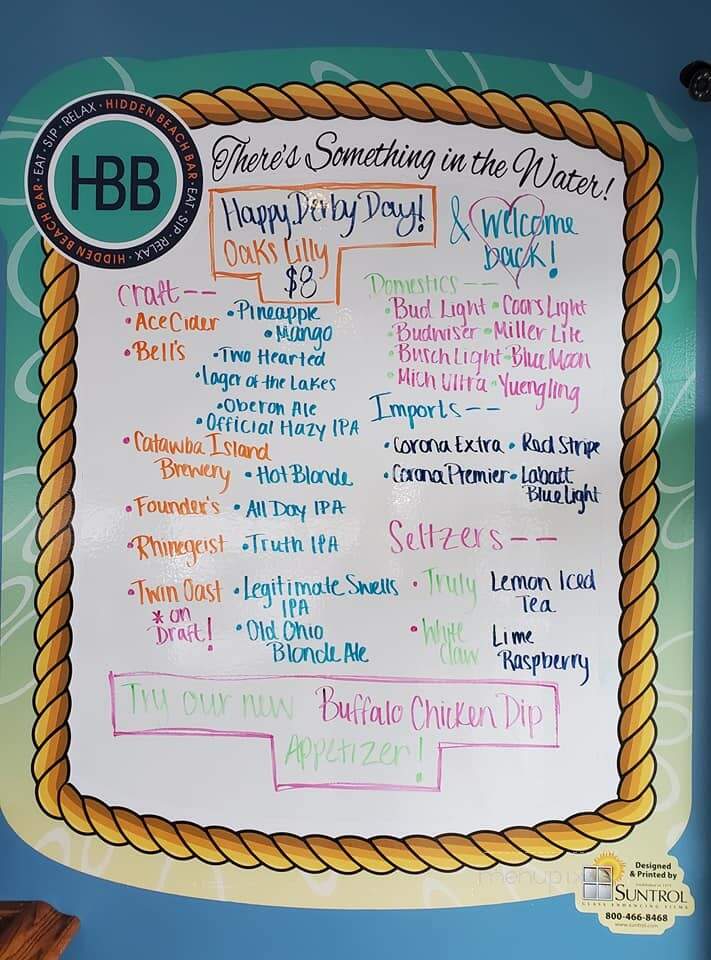 HIDDEN BEACH BAR · EAT · SIP · RELAX · HIDDEN BEACH BAR · EAT · SIP · RELAX ·
HBB
There's Something in the Water!
Happy Derby Day!
Oaks Lilly
$8
& Welcome
back!
Craft--
• Ace Cider • Pineapple
• Mango
• Bell's • Two Hearted
• Lager of the Lakes
• Oberon Ale
• Official Hazy IPA
• Catawba Island
Brewery • Hot Blonde
• Founder's • All Day IPA
• Rhinegeist • Truth IPA
• Twin Oast • Legitimate Swells
IPA
* on
Draft! • Old Ohio
Blonde Ale
Domestics--
• Bud Light • Coors Light
• Budwiser • Miller Lite
• Busch Light • Blue Moon
• Mich Ultra • Yuengling
Imports--
• Corona Extra • Red Stripe
• Corona Premier • Labatt
Blue Light
Seltzers--
• Truly Lemon Iced
Tea
• White Lime
Claw Raspberry
Try our new Buffalo Chicken Dip
Appetizer!
menupix
Designed
& Printed by
SUNTROL
GLASS ENHANCING FILMS
800-466-8468
www.suntrol.com